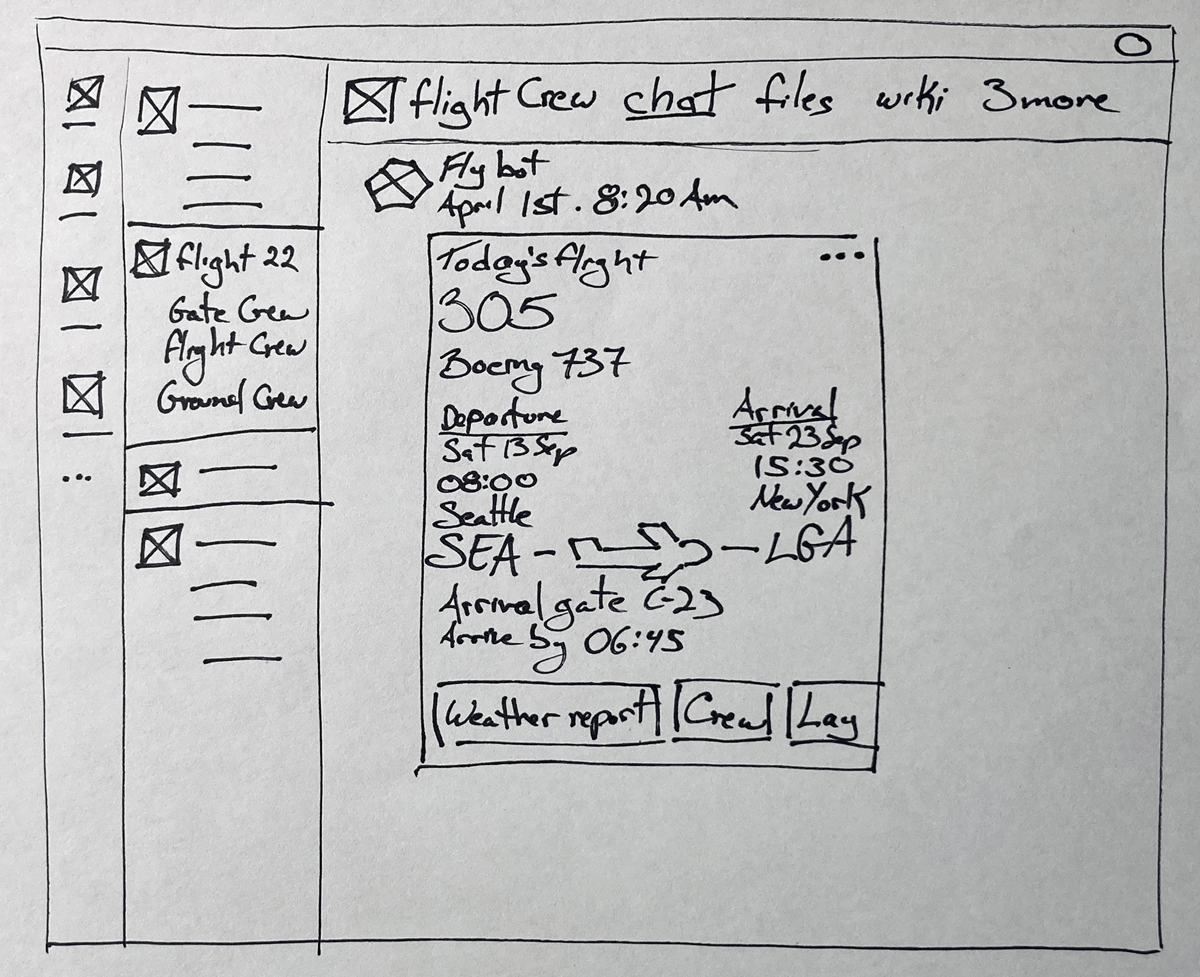 flight Crew chat files wiki 3more
flight 22
Gate Crew
flight Crew
Ground Crew
Fly bot
April 1st. 8:20 Am
Today's flight
...
305
Boeing 737
Departure
Sat 13 Sep
08:00
Seattle
SEA -
Arrival
Sat 23 Sep
15:30
New York
- LGA
Arrival gate C-23
Arrive by 06:45
Weather report
Crew
Lay
...